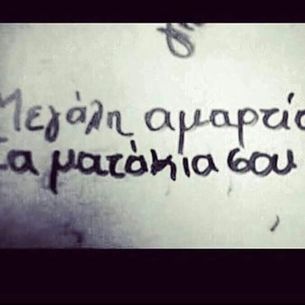 Μεγάλη αμαρτία
τα ματάκια σου